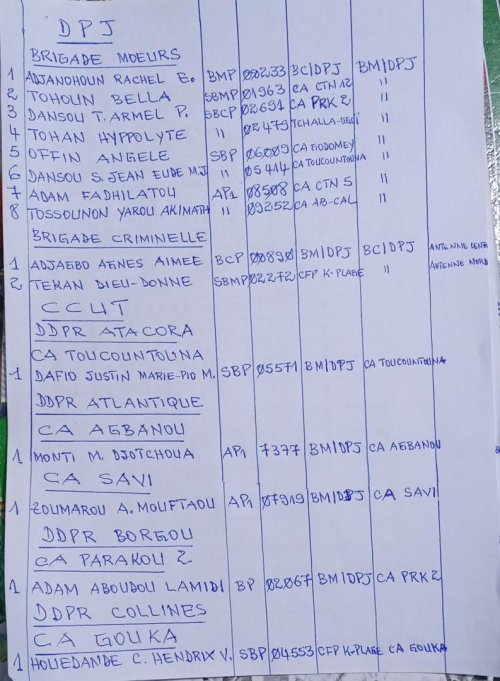 DPJ
BRIGADE MOEURS
1 ADJANOHOUN RACHEL E. BMP 00233 BC/DPJ BM/DPJ
2 TOHOUN BELLA SBMP 01963 CA CTN 12 "
3 DANSOU T. ARMEL P. SBCP 02691 CA PRK 2 "
4 TOHAN HYPPOLYTE " 02479 TCHALLA-OGOI "
5 OFFIN ANGELE SBP 06089 CA GODOMEY "
6 DANSOU S. JEAN EUDE M.J " 05414 CA TOUCOUNTOUNA "
7 ADAM FADHILATOU AP1 08508 CA CTN 5 "
8 TOSSOUNON YAROU AKIMATH " 09252 CA AB-CAL "
BRIGADE CRIMINELLE
1 ADJAGBO AGNES AIMEE BCP 00890 BM/DPJ BC/DPJ ANTENNE
2 TEKAN DIEU-DONNE SBMP 02272 CFP K-PLAGE " ANTENNE NORD
CCUT
DDPR ATACORA
CA TOUCOUNTOUNA
1 DAFIO JUSTIN MARIE-PIO M. SBP 05571 BM/DPJ CA TOUCOUNTOUNA
DDPR ATLANTIQUE
CA AGBANOU
1 MONTI M. DJOTCHOUA AP1 7377 BM/DPJ CA AGBANOU
CA SAVI
1 ZOUMAROU A. MOUFTAOU AP1 07919 BM/DPJ CA SAVI
DDPR BORGOU
CA PARAKOU 2
1 ADAM ABOUDOU LAMIDI BP 02067 BM/DPJ CA PRK 2
DDPR COLLINES
CA GOUKA
1 HOUEDANDE C. HENDRIX V. SBP 04553 CFP K-PLAGE CA GOUKA